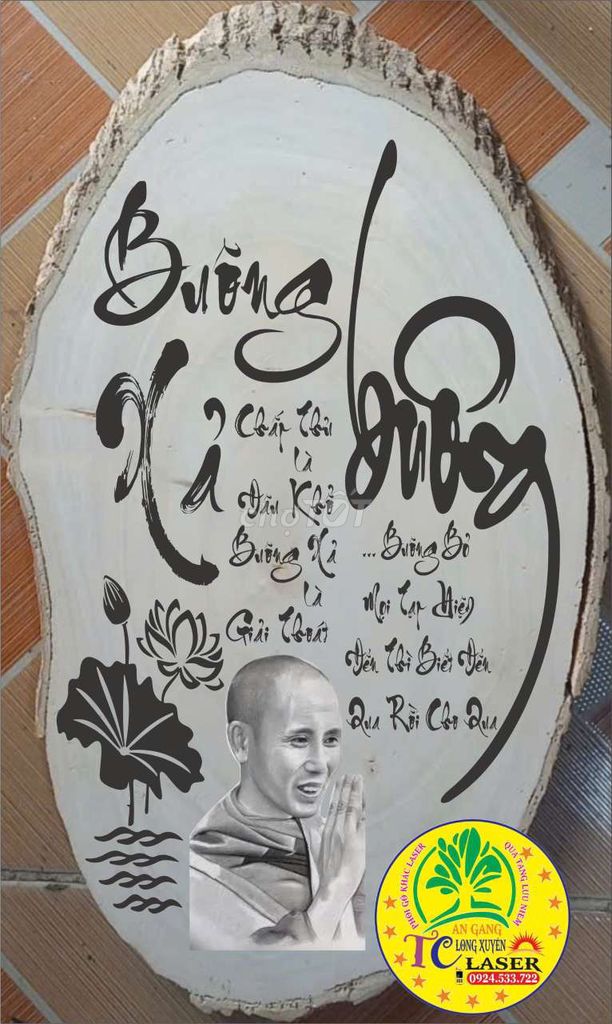 Buông
Xả
buông
Chấp Thủ
Là
Đau Khổ
Buông Xả
Là
Giải Thoát
... Buông Bỏ
Mọi Tạp Niệm
Đến Thì Biết Đến
Qua Rồi Cho Qua
chợTỐT
PHÔI GỖ KHẮC LASER
QUÀ TẶNG LƯU NIỆM
AN GANG
TC LONG XUYÊN
LASER
0924.533.722